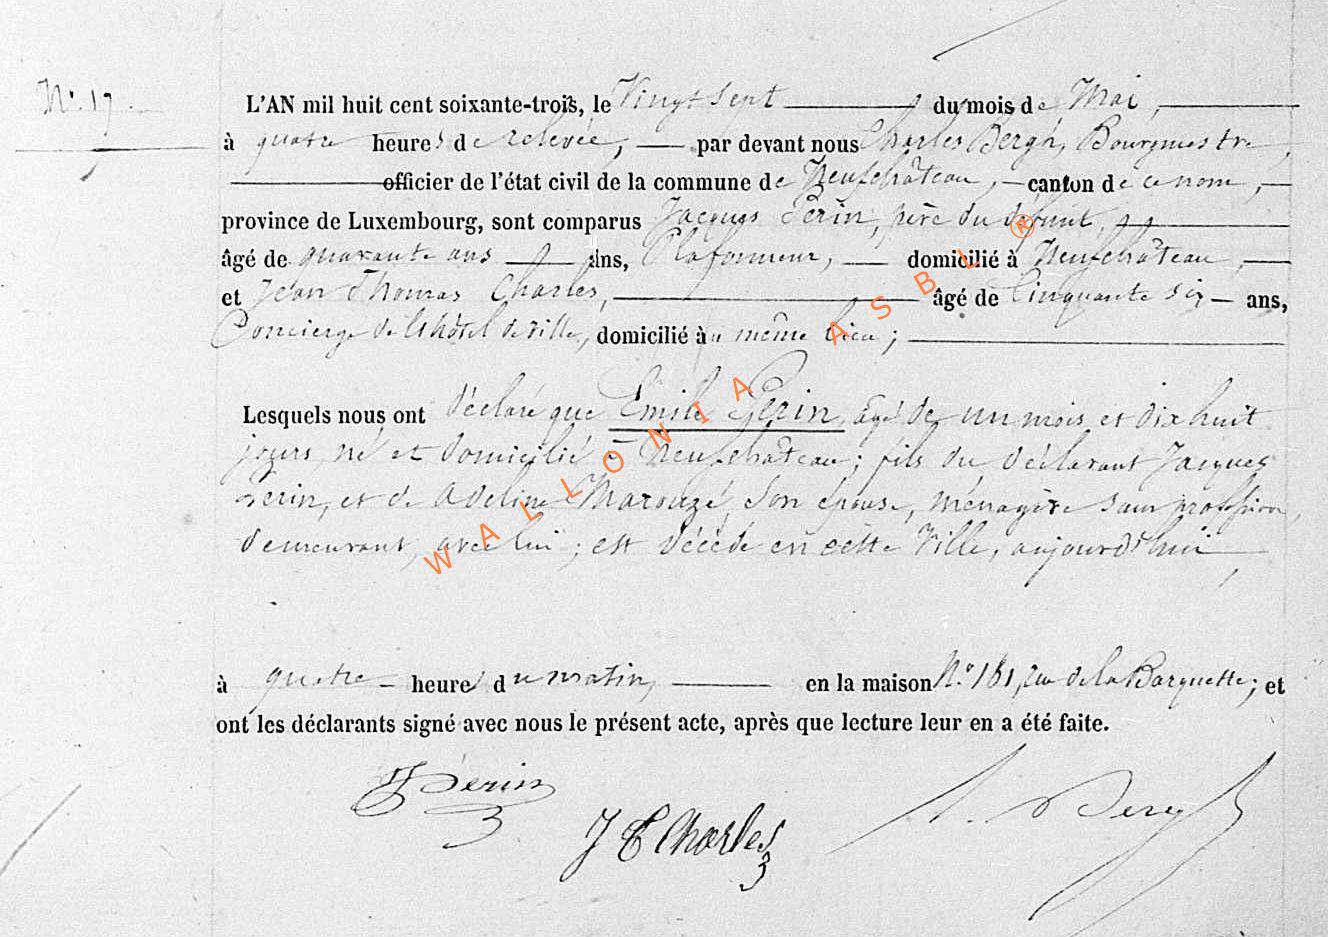 N° 17
L'AN mil huit cent soixante-trois, le Vingt Sept du mois de Mai,
à quatre heures de relevée, par devant nous Charles Bergh, Bourgmestre,
officier de l'état civil de la commune de Neufchâteau, canton de ce nom,
province de Luxembourg, sont comparus Jacques Perin, père du défunt,
âgé de quarante ans ans, Plafonneur, domicilié à Neufchâteau,
et Jean Thomas Charles, âgé de Cinquante Six ans,
Concierge de l'hôtel de ville, domicilié au même lieu;
Lesquels nous ont déclaré que Emile Perin, âgé de un mois et dix huit
jours, né et domicilié à Neufchâteau; fils du déclarant Jacques
Perin, et de Adeline Marouzé, Son épouse, ménagère sans profession,
demeurant avec lui; est décédé en cette Ville, aujourd'hui,
à quatre heures du matin, en la maison N° 161, rue de la Barquette; et
ont les déclarants signé avec nous le présent acte, après que lecture leur en a été faite.
J Perin
J T Charles
WALLONIA ASBL ®